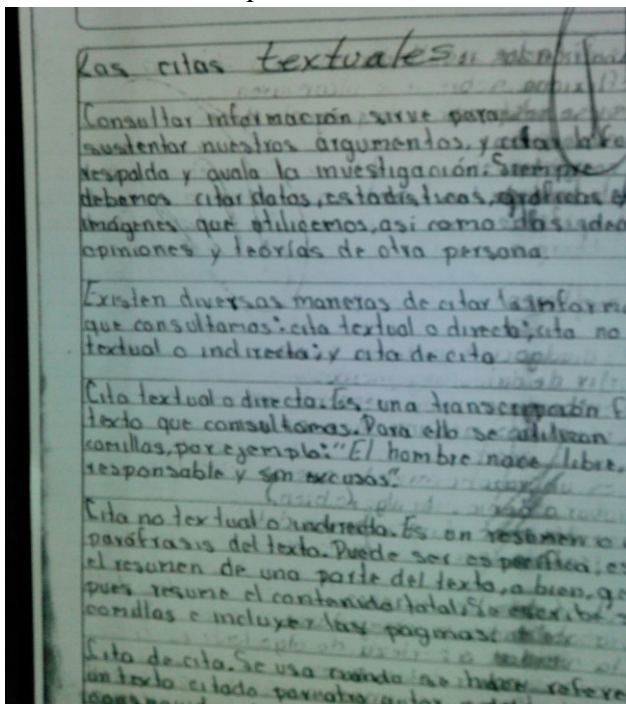 Las citas textuales
Consultar información sirve para
sustentar nuestros argumentos, y citar la
respalda y avala la investigación. Siempre
debemos citar datos, estadísticas, gráficas
imágenes que utilicemos, asi como las
opiniones y teorías de otra persona
Existen diversas maneras de citar la
que consultamos: cita textual o directa; cita no
textual o indirecta; y cita de cita
Cita textual o directa. Es una transcripción
texto que consultamos. Para ello se utilizan
comillas, por ejemplo: "El hombre nace libre,
responsable y sin excusas".
Cita no textual o indirecta. Es un resumen o
paráfrasis del texto. Puede ser específica,
el resumen de una parte del texto, o bien,
pues resume el contenido total. Se escribe
comillas e incluye las paginas
Cita de cita. Se usa cuando se hace
un texto citado por otro autor